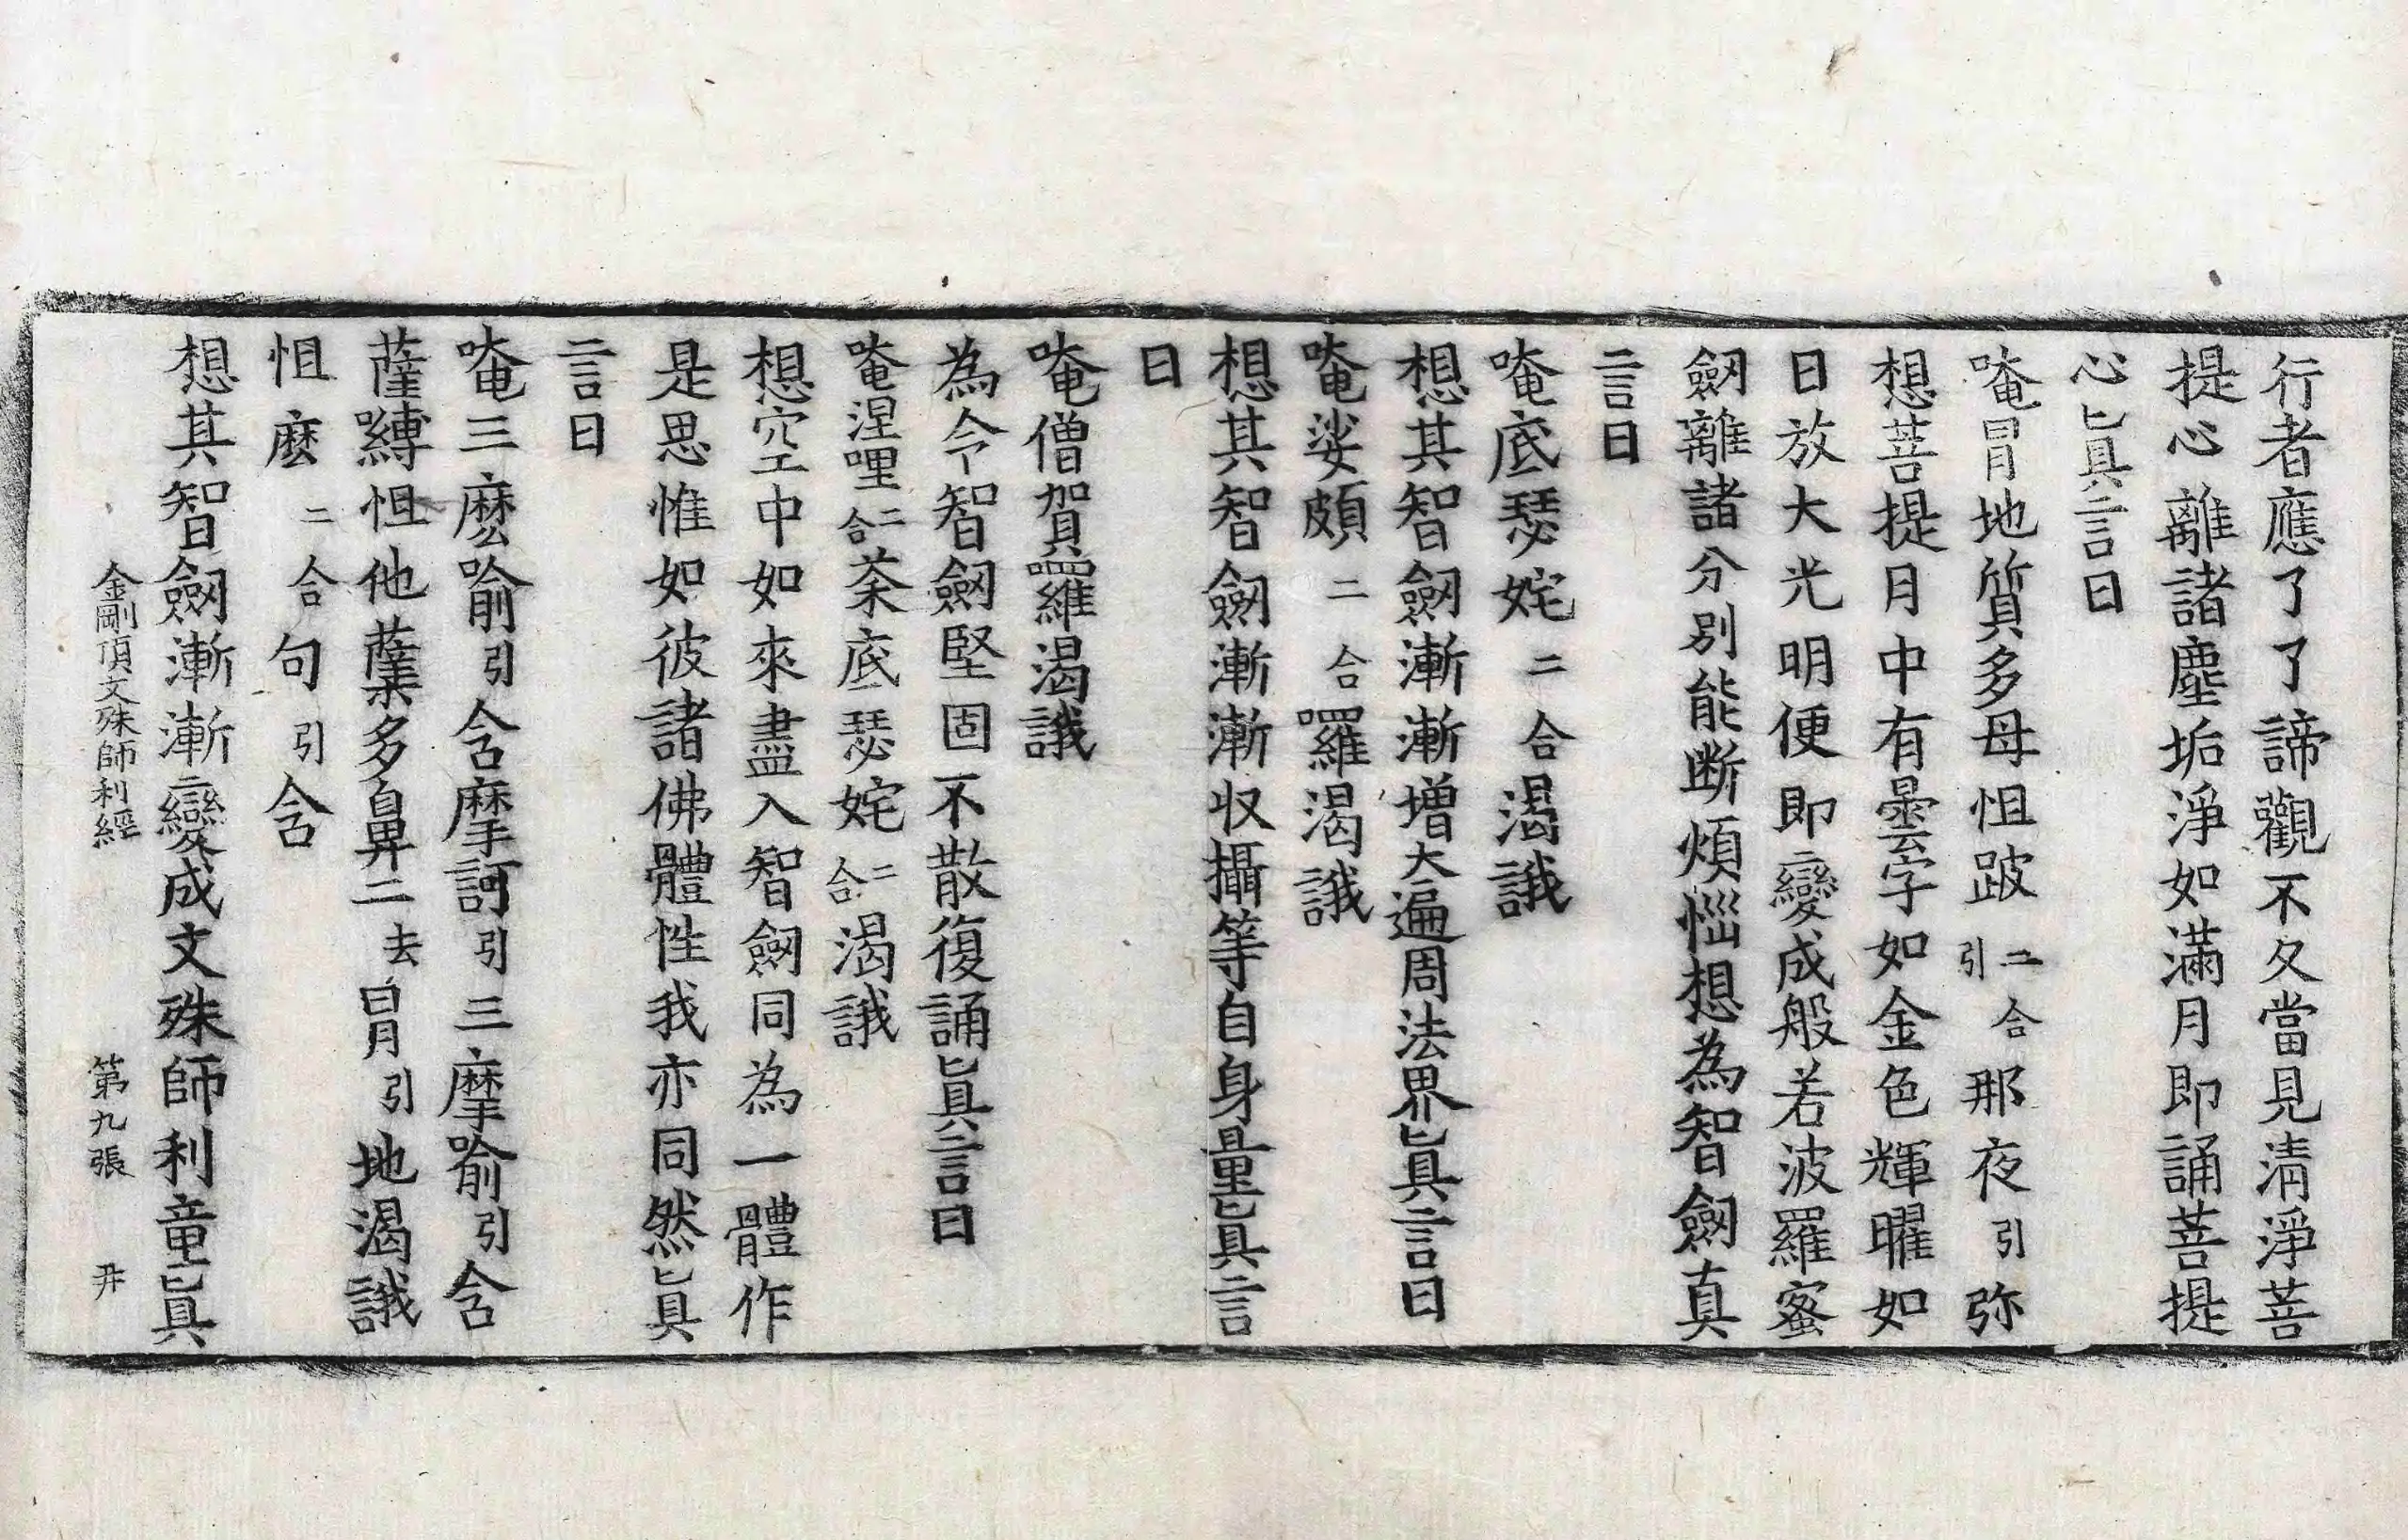 行者應了了諦觀不久當見清淨菩
提心離諸塵垢淨如滿月即誦菩提
心眞言曰
唵冐地質多母怛跛二合引那夜引弥
想菩提月中有曇字如金色輝曜如
日放大光明便即變成般若波羅蜜
劒離諸分別能断煩惱想為智劒真
言曰
唵底瑟姹二合渴誐
想其智劒漸漸增大遍周法界眞言曰
唵娑頗二合囉渴誐
想其智劒漸漸収攝等自身量眞言
曰
唵僧賀羅渴誐
為令智劒堅固不散復誦眞言曰
唵涅哩二合荼底瑟姹二合渴誐
想空中如來盡入智劒同為一體作
是思惟如彼諸佛體性我亦同然眞
言曰
唵三麽喻引含摩訶引三摩喻引含
薩嚩怛他蘖多鼻二去冐引地渴誐
怛麽二合句引含
想其智劒漸漸變成文殊師利童眞
金剛頂文殊師利經 第九張